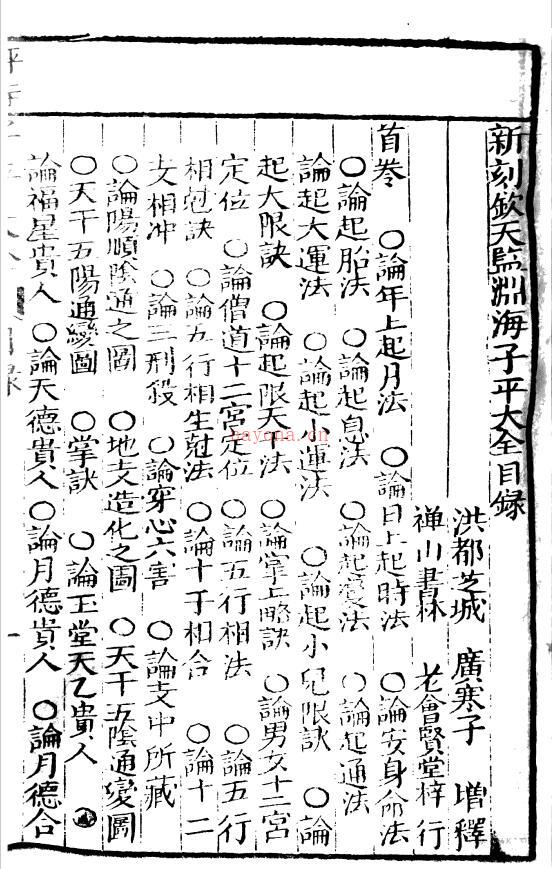 新刻欽天監淵海子平大全目録
洪都芝城 廣寒子 增釋
禅山書林 老會賢堂梓行
首卷 〇論年上起月法 〇論日上起時法 〇論安身命法
〇論起胎法 〇論起息法 〇論起變法 〇論起通法
論起大運法 〇論起小運法 〇論起小兒限訣 〇論
起大限訣 〇論起限天干法 〇論掌上略訣 〇論男女十二宮
定位 〇論僧道十二宮定位 〇論五行相法 〇論五行
相尅訣 〇論五行相生尅法 〇論十干相合 〇論十二
支相冲 〇論三刑殺 〇論穿心六害 〇論支中所藏
〇論陽順陰通之圖 〇地支造化之圖 〇天干五陰通變圖
〇天干五陽通變圖 〇掌訣 〇論玉堂天乙貴人
論福星貴人 〇論天德貴人 〇論月德貴人 〇論月德合
nayona.cn